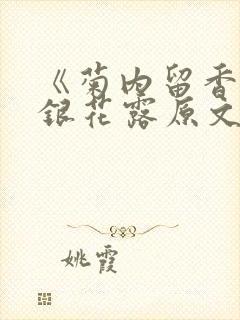 《菊内留香
银花露原文
姚霞